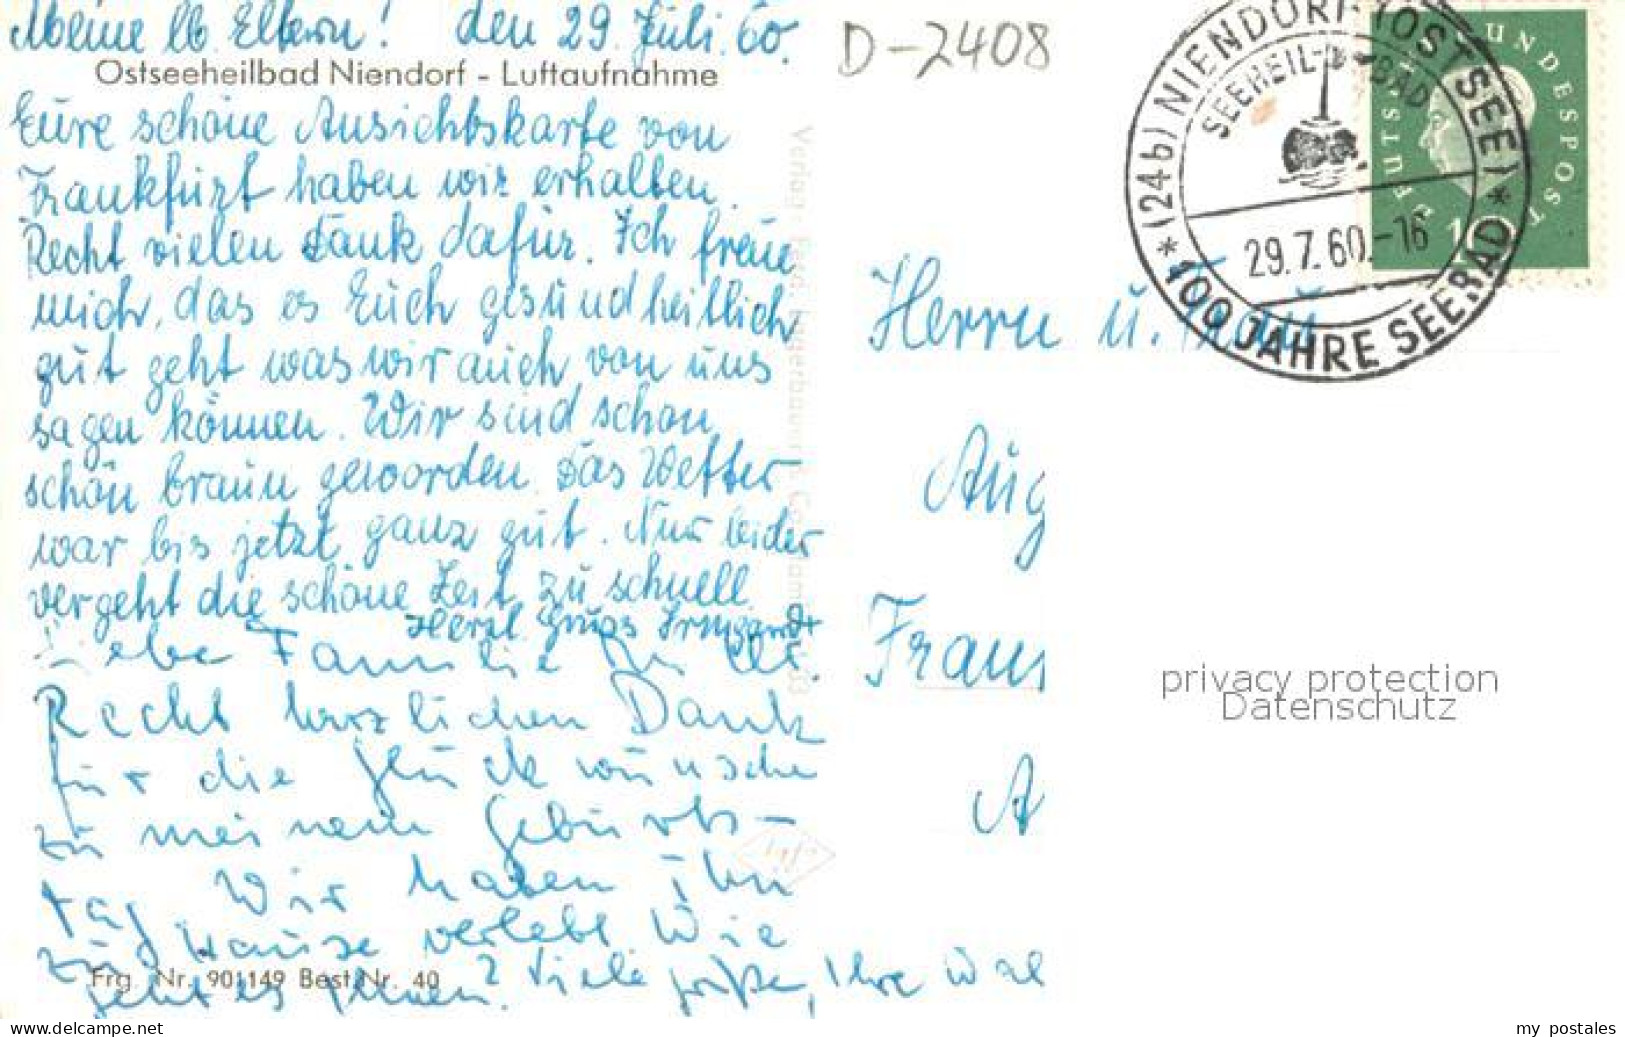 Meine lb. Eltern! den 29. Juli. 60.
Ostseeheilbad Niendorf - Luftaufnahme
Eure schöne Ansichtskarte von
Frankfurt haben wir erhalten.
Recht vielen Dank dafür. Ich freue
mich, das es Euch gesundheitlich
gut geht was wir auch von uns
sagen können. Wir sind schon
schön braun geworden. Das Wetter
war bis jetzt ganz gut. Nur leider
vergeht die schöne Zeit zu schnell.
Herzl. Gruss Irmgard
Familie
Recht herzlichen Dank
für die Glückwünsche
zu meinem Geburts-
tag Wir haben ihn
zu Hause verlebt Wie
geht es Ihnen? Viele Grüße, Ihre
Frg. Nr. 901149 Best.Nr. 40
D-2408
(24b) NIENDORF (OSTSEE)
SEEHEIL-BAD
29.7.60.-16
100 JAHRE SEEBAD
DEUTSCHE BUNDESPOST
10
Herrn u. Frau
Aug
A
privacy protection
Datenschutz
www.delcampe.net
my postales